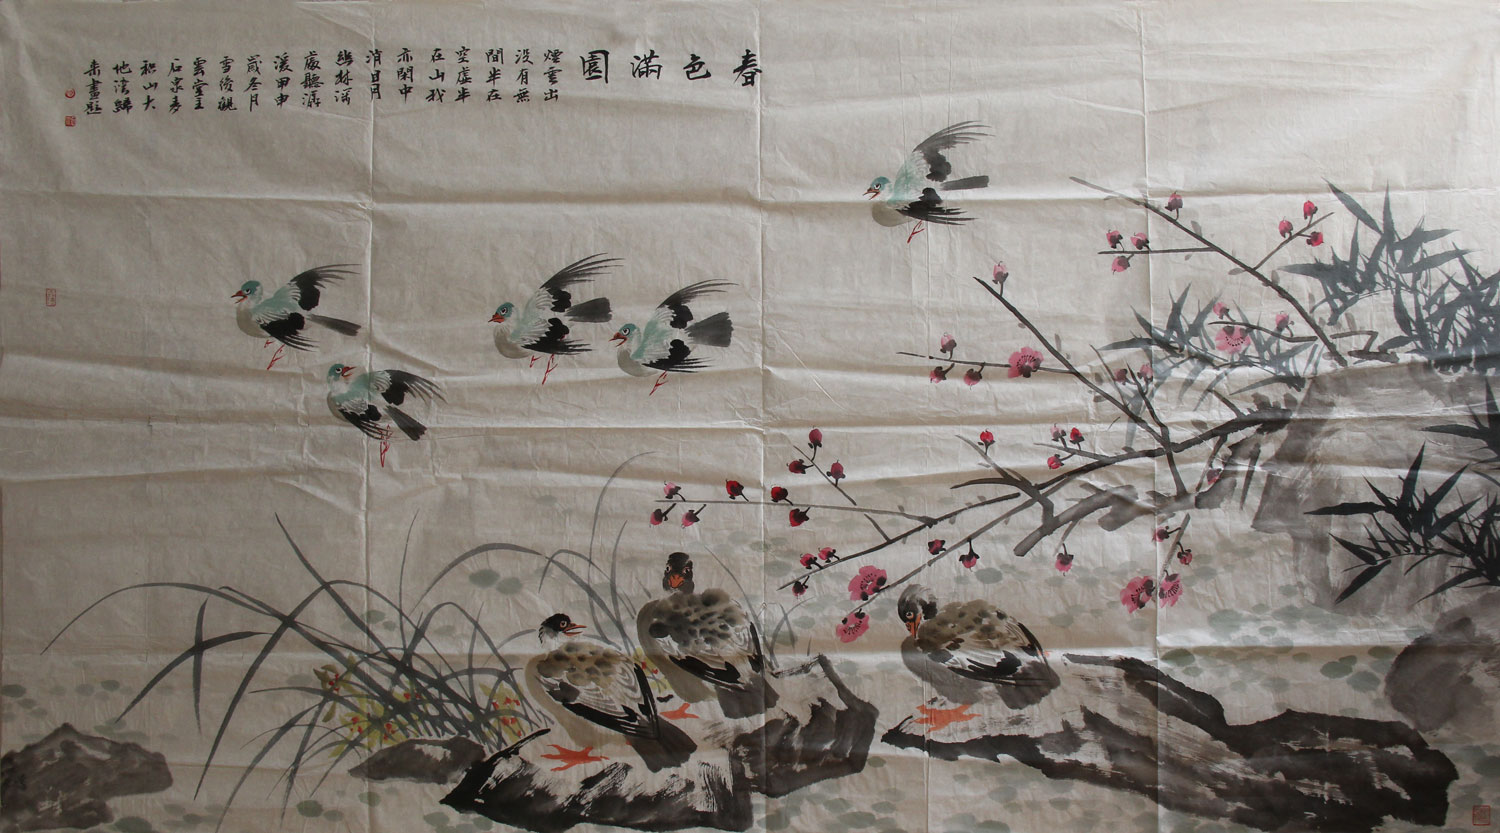 春色滿園
煙雲出
没有無
間半在
空虛半
在山我
亦閑中
消日月
幽林深
處聽潺
湲甲申
歲冬月
雪後觀
雲堂主
石
山大
地歸
來畫題